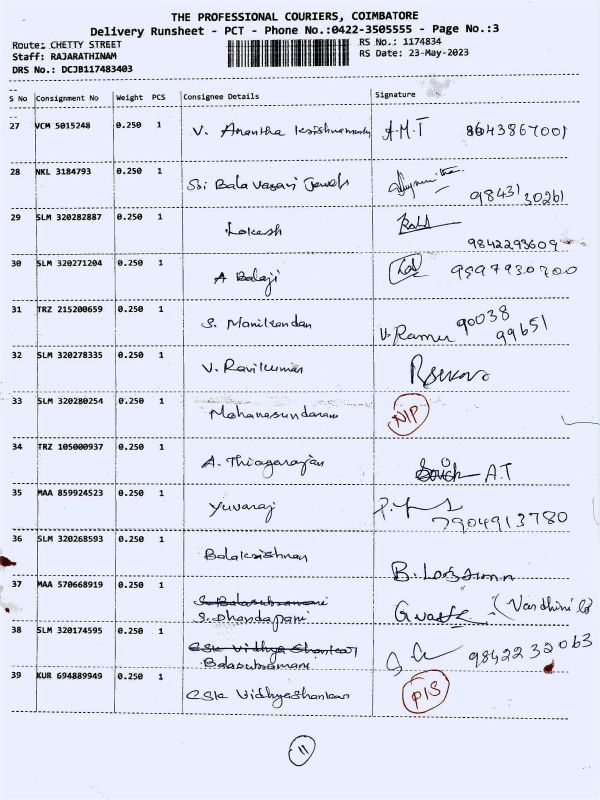 THE PROFESSIONAL COURIERS, COIMBATORE
Delivery Runsheet - PCT - Phone No.:0422-3505555 - Page No.:3
Route: CHETTY STREET RS No.: 1174834
Staff: RAJARATHINAM RS Date: 23-May-2023
DRS No.: DCJB117483403
S No Consignment No Weight PCS Consignee Details Signature
27 VCM 5015248 0.250 1 V. Anantha A.M.T 8643867001
28 NKL 3184793 0.250 1 Sri Bala Jewels 98431 30261
29 SLM 320282887 0.250 1 Lokesh 9842293609
30 SLM 320271204 0.250 1 A Balaji
31 TRZ 215200659 0.250 1 S. Manikandan V. Ramu 90038 99651
32 SLM 320278335 0.250 1 V. Ravikumar
33 SLM 320280254 0.250 1 Mohanasundaram NIP
34 TRZ 105000937 0.250 1 A. Thiagarajan A.T
35 MAA 859924523 0.250 1 Yuvaraj 7904913780
36 SLM 320268593 0.250 1 Balakrishnan
37 MAA 570668919 0.250 1 S. Balasubramani
S. Dhandapani
38 SLM 320174595 0.250 1 CSK Vidhya Shankar
Balasubramani 9842232063
39 KUR 694889949 0.250 1 CSK Vidhyashankar PIS
11